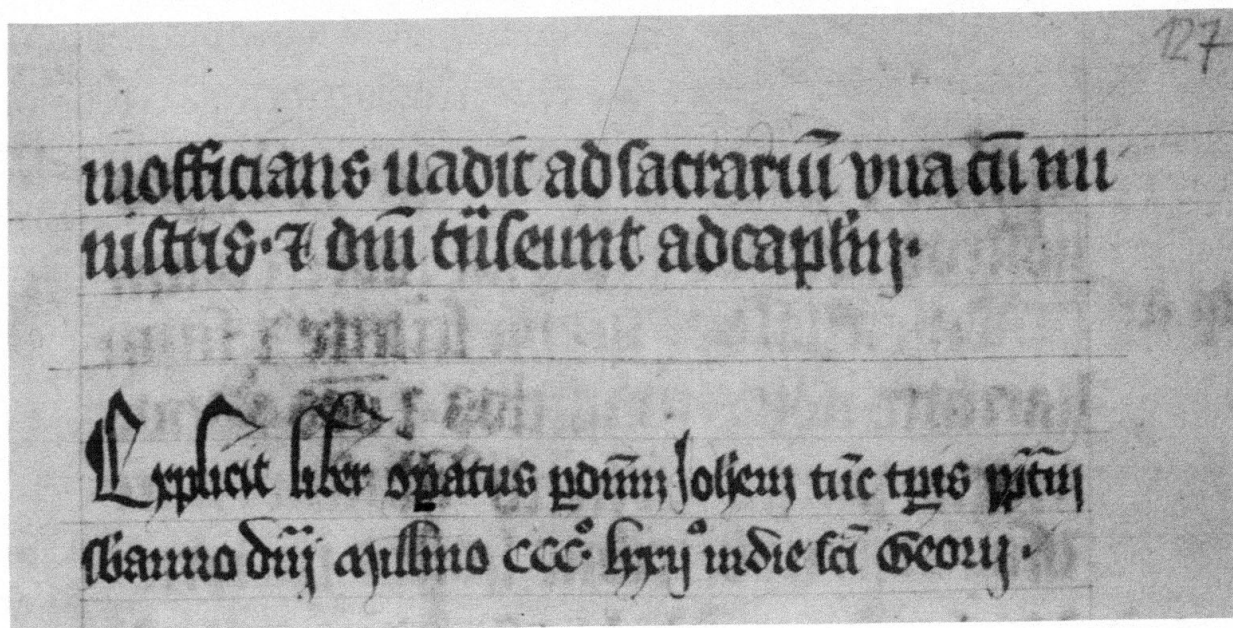 127
inofficians uadit ad sacrariū vna cū mi
nistris · ⁊ dn̄i tūseunt ad caplm̄ ·
Explicit liber opatus p dom̄ Johem tūc tpis
sb anno dn̄j Millmo CCC° lxxij° in die sc̄i Georij ·